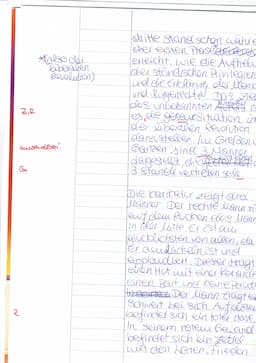 dritte Stand schon während
der ersten Phase
erreicht, wie die Aufhebung
der ständischen Privilegien
und die Erklärung der Men
und Bürgerrechte. Das Ziel
des unbekannten
es, die Situation in
*(Phase der liberalen Revolution)
der liberalen Revolution
darzustellen. Im Großen u
Z.R
Ganzen sind 3 Männer
ausschreiben!
dargestellt, die
G
3 Stände vertreten
Die Karikatur zeigt drei
Männer. Der rechte Mann
auf dem Rücken des Mann
in der Mitte. Er ist am
glücklichsten von allen, da
er am lächeln ist und
applaudiert. Dieser trägt
einen Hut mit einer Kokarde
einen Bart und
Der Mann trägt
Schwert bei sich. Auf
befindet sich ein toter Hase.
Z
In seinem rotem Gewand
befindet sich ein Zettel
mit den Worten: Frieden